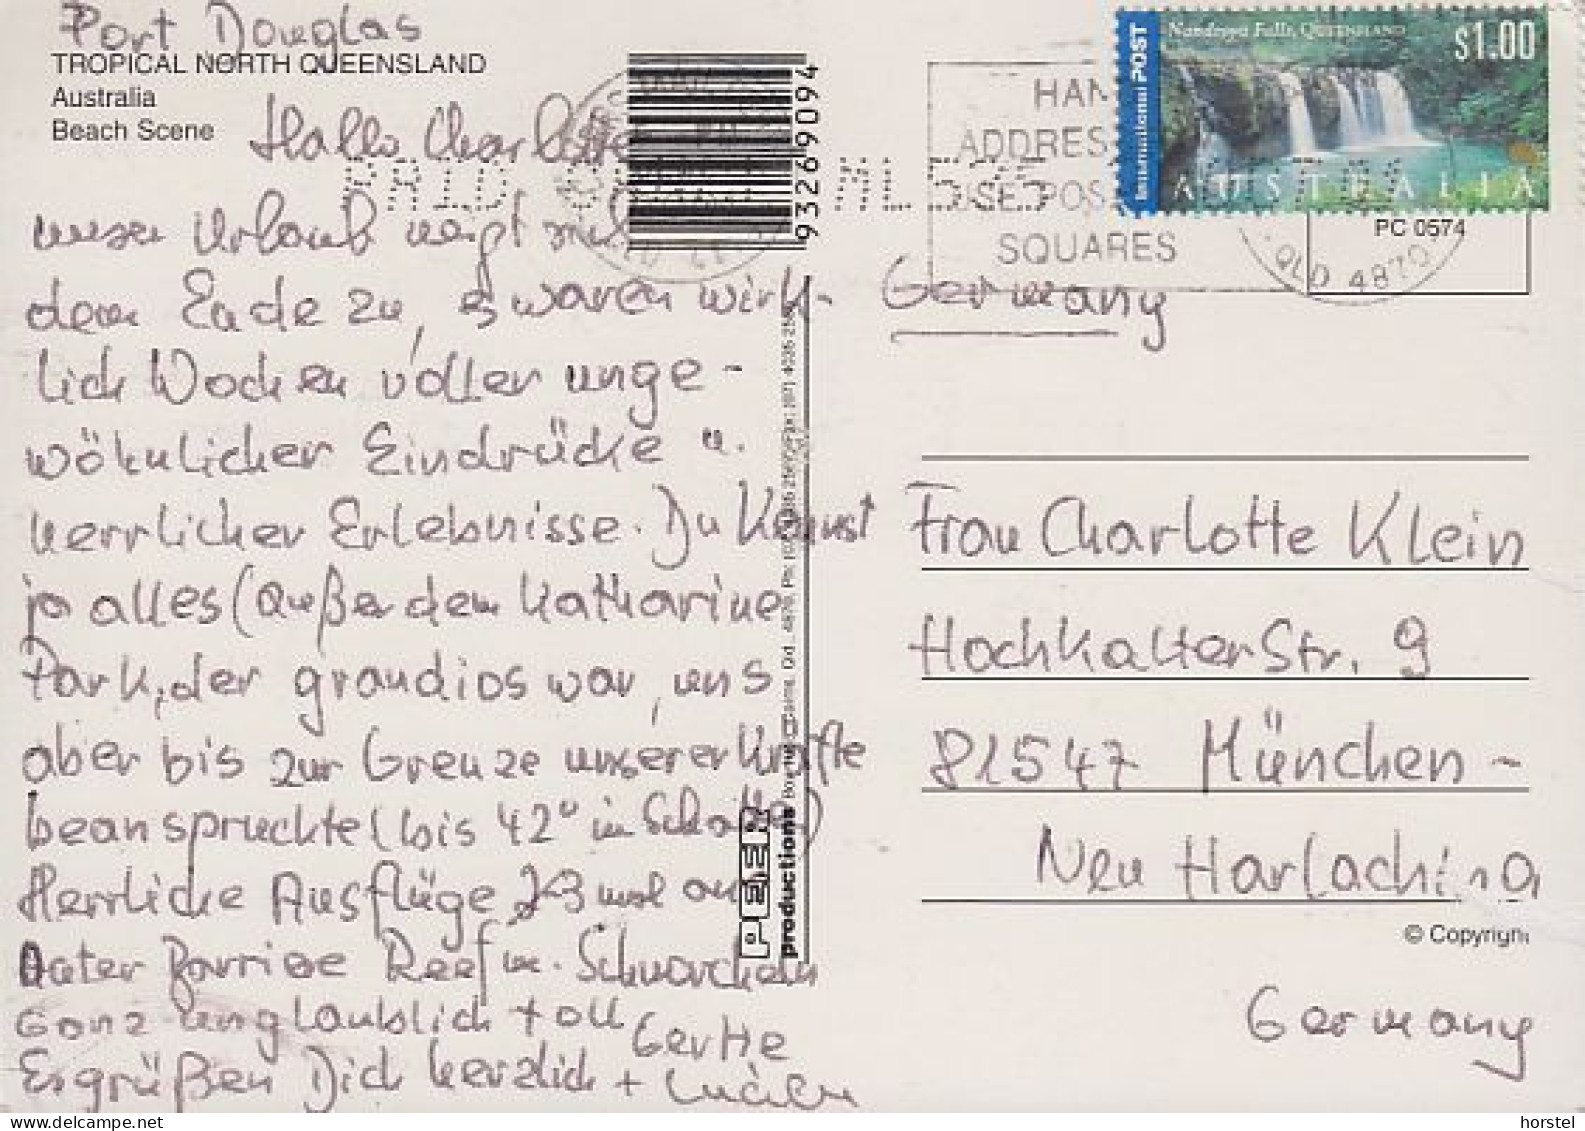 Port Douglas
TROPICAL NORTH QUEENSLAND
Australia
Beach Scene
Hallo Charlotte
unser Urlaub neigt sich
dem Ende zu, es waren wirk-
lich Wochen voller unge-
wöhnlicher Eindrücke u.
herrlicher Erlebnisse. Du kennst
ja alles (außer dem Katharine
Park, der grandios war, uns
aber bis zur Grenze unserer Kräfte
beanspruchte (bis 42° im Schatten)
Herrliche Ausflüge, 2x3 mal am
Outer Barriere Reef m. Schnorcheln
Ganz unglaublich toll
Es grüßen Dich herzlich
Gertie
+
9326909 4
PEER
productions
HAN
ADDRES
USE POS
SQUARES
PAID
AUSTRALIA
QLD 4870
International POST
Nandroya Falls, QUEENSLAND
$1.00
AUSTRALIA
PC 0574
Germany
Frau Charlotte Klein
Hochkalter Str. 9
81547 München-
Neu Harlaching
© Copyright
Germany
delcampe.net
horstel